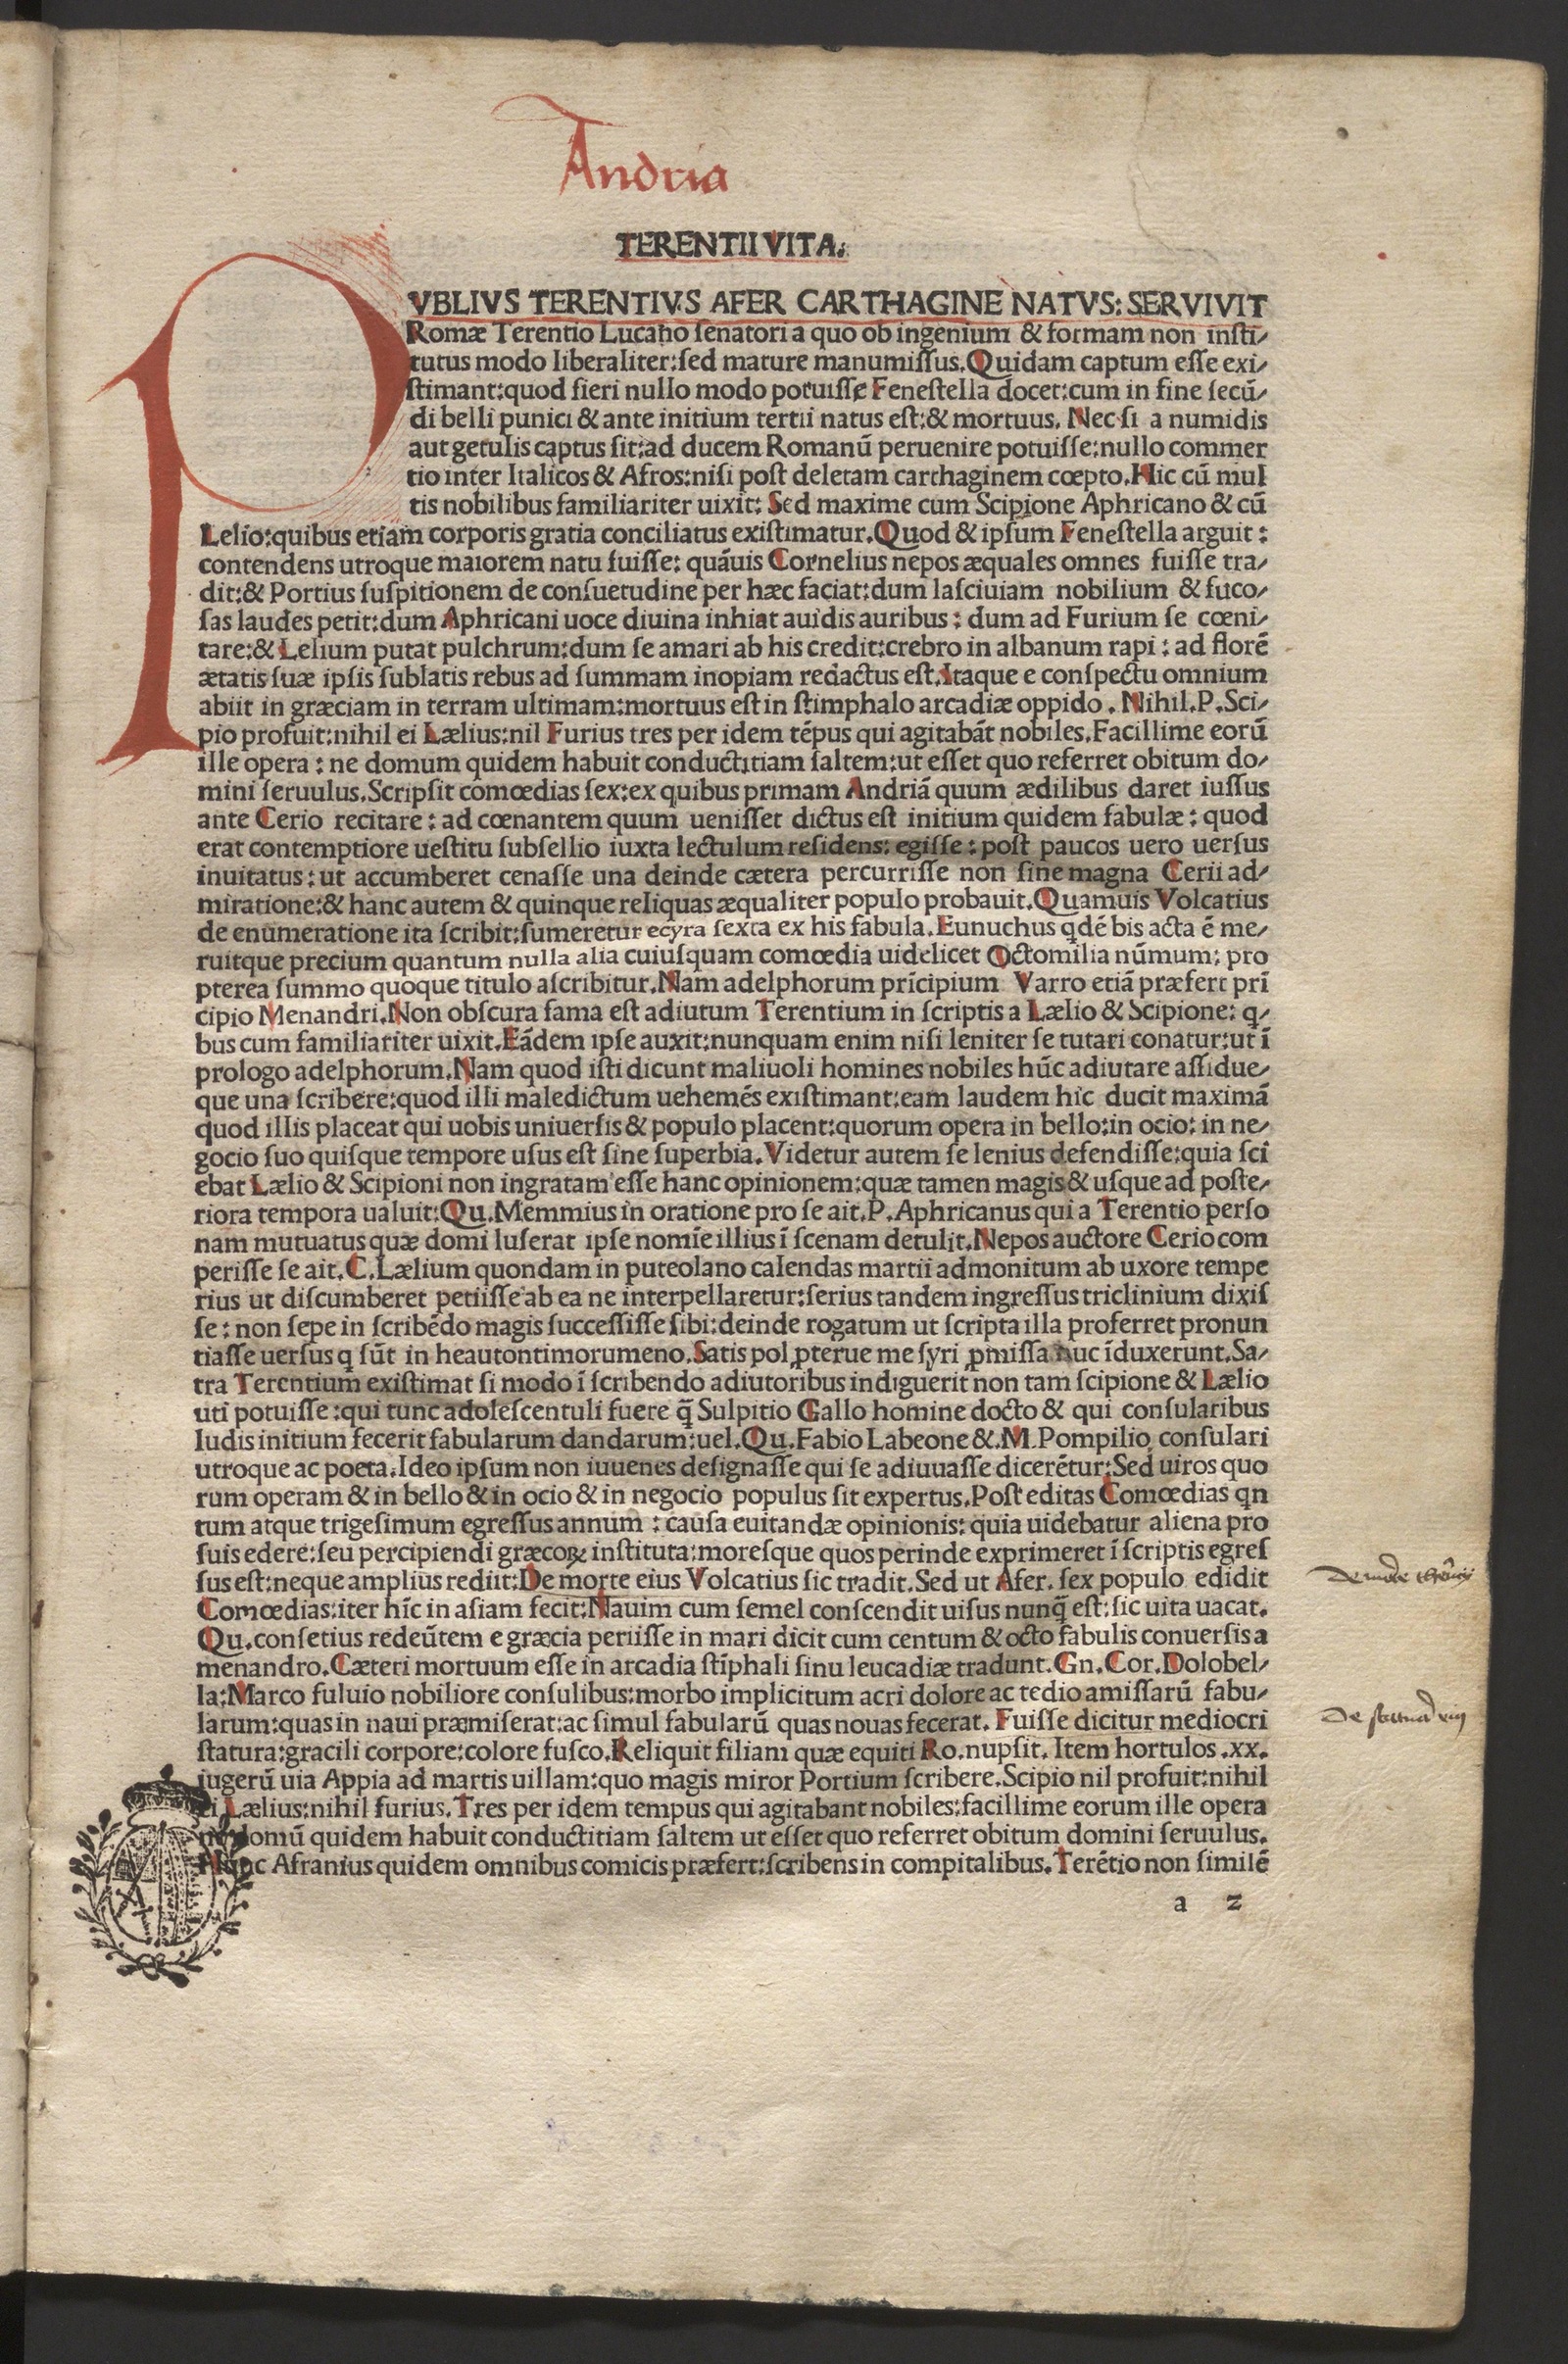 Andria
TERENTII VITA.
PVBLIVS TERENTIVS AFER CARTHAGINE NATVS: SERVIVIT
Romæ Terentio Lucano ſenatori a quo ob ingenium & formam non inſti/
tutus modo liberaliter:ſed mature manumiſſus.Quidam captum eſſe exi/
ſtimant:quod fieri nullo modo potuiſſe Feneſtella docet:cum in fine ſecū/
di belli punici & ante initium tertii natus eſt:& mortuus. Nec ſi a numidis
aut getulis captus ſit:ad ducem Romanū peruenire potuiſſe:nullo commer
tio inter Italicos & Afros:niſi poſt deletam carthaginem cœpto.Hic cū mul
tis nobilibus familiariter uixit: Sed maxime cum Scipione Aphricano & cū
Lelio:quibus etiam corporis gratia conciliatus exiſtimatur.Quod & ipſum Feneſtella arguit:
contendens utroque maiorem natu fuiſſe: quāuis Cornelius nepos æquales omnes fuiſſe tra/
dit:& Portius ſuſpitionem de conſuetudine per hæc faciat:dum laſciuiam nobilium & fuco/
ſas laudes petit:dum Aphricani uoce diuina inhiat auidis auribus: dum ad Furium ſe cœni/
tare:& Lelium putat pulchrum:dum ſe amari ab his credit:crebro in albanum rapi: ad florē
ætatis ſuæ ipſis ſublatis rebus ad ſummam inopiam redactus eſt.Itaque e conſpectu omnium
abiit in græciam in terram ultimam:mortuus eſt in ſtimphalo arcadiæ oppido. Nihil.P.Sci/
pio profuit:nihil ei Lælius:nil Furius tres per idem tēpus qui agitabāt nobiles.Facillime eorū
ille opera: ne domum quidem habuit conductitiam ſaltem:ut eſſet quo referret obitum do/
mini ſeruulus.Scripſit comœdias ſex:ex quibus primam Andriā quum ædilibus daret iuſſus
ante Cerio recitare: ad cœnantem quum ueniſſet dictus eſt initium quidem fabulæ: quod
erat contemptiore ueſtitu ſubſellio iuxta lectulum reſidens: egiſſe: poſt paucos uero uerſus
inuitatus: ut accumberet cenaſſe una deinde cætera percurriſſe non ſine magna Cerii ad/
miratione:& hanc autem & quinque reliquas æqualiter populo probauit.Quamuis Volcatius
de enumeratione ita ſcribit:ſumeretur ecyra ſexta ex his fabula.Eunuchus qdē bis acta ē me/
ruitque precium quantum nulla alia cuiuſquam comœdia uidelicet Octomilia nūmum: pro
pterea ſummo quoque titulo aſcribitur.Nam adelphorum prīcipium Varro etiā præfert prī
cipio Menandri.Non obſcura fama eſt adiutum Terentium in ſcriptis a Lælio & Scipione: q/
bus cum familiariter uixit.Eādem ipſe auxit:nunquam enim niſi leniter ſe tutari conatur:ut ī
prologo adelphorum.Nam quod iſti dicunt maliuoli homines nobiles hūc adiutare aſſidue/
que una ſcribere:quod illi maledictum uehemēs exiſtimant:eam laudem hic ducit maximā
quod illis placeat qui uobis uniuerſis & populo placent:quorum opera in bello:in ocio: in ne/
gocio ſuo quiſque tempore uſus eſt ſine ſuperbia.Videtur autem ſe lenius defendiſſe:quia ſci
ebat Lælio & Scipioni non ingratam eſſe hanc opinionem:quæ tamen magis & uſque ad poſte/
riora tempora ualuit:Qu.Memmius in oratione pro ſe ait.P.Aphricanus qui a Terentio perſo
nam mutuatus quæ domi luſerat ipſe nomīe illius ī ſcenam detulit.Nepos auctore Cerio com
periſſe ſe ait.C.Lælium quondam in puteolano calendas martii admonitum ab uxore tempe
rius ut diſcumberet petiiſſe ab ea ne interpellaretur:ſerius tandem ingreſſus triclinium dixiſ
ſe: non ſepe in ſcribēdo magis ſucceſſiſſe ſibi:deinde rogatum ut ſcripta illa proferret pronun
tiaſſe uerſus q ſūt in heautontimorumeno.Satis pol ꝓterue me ſyri ꝓmiſſa huc īduxerunt.Sa/
tra Terentium exiſtimat ſi modo ī ſcribendo adiutoribus indiguerit non tam ſcipione & Lælio
uti potuiſſe:qui tunc adoleſcentuli fuere q̄ Sulpitio Gallo homine docto & qui conſularibus
ludis initium fecerit fabularum dandarum:uel.Qu.Fabio Labeone &.M.Pompilio conſulari
utroque ac poeta.Ideo ipſum non iuuenes deſignaſſe qui ſe adiuuaſſe dicerētur:Sed uiros quo
rum operam & in bello & in ocio & in negocio populus ſit expertus.Poſt editas Comœdias qn
tum atque trigeſimum egreſſus annum: cauſa euitandæ opinionis: quia uidebatur aliena pro
ſuis edere:ſeu percipiendi græcoꝝ inſtituta:moreſque quos perinde exprimeret ī ſcriptis egreſ
ſus eſt:neque amplius rediit:De morte eius Volcatius ſic tradit.Sed ut Afer. ſex populo edidit
Comœdias:iter hīc in aſiam fecit:Nauim cum ſemel conſcendit uiſus nunq̄ eſt:ſic uita uacat.
Qu.conſetius redeūtem e græcia periiſſe in mari dicit cum centum & octo fabulis conuerſis a
menandro.Cæteri mortuum eſſe in arcadia ſtīphali ſinu leucadiæ tradunt.Gn.Cor.Dolobel/
la:Marco fuluio nobiliore conſulibus:morbo implicitum acri dolore ac tedio amiſſarū fabu/
larum:quas in naui præmiſerat:ac ſimul fabularū quas nouas fecerat. Fuiſſe dicitur mediocri
ſtatura:gracili corpore:colore fuſco.Reliquit filiam quæ equiti Ro.nupſit. Item hortulos .xx.
iugerū uia Appia ad martis uillam:quo magis miror Portium ſcribere.Scipio nil profuit:nihil
ei Lælius:nihil furius.Tres per idem tempus qui agitabant nobiles:facillime eorum ille opera
ne domū quidem habuit conductitiam ſaltem ut eſſet quo referret obitum domini ſeruulus.
Hunc Afranius quidem omnibus comicis præfert:ſcribens in compitalibus.Terētio non ſimilē
a 2
De morte
De statura